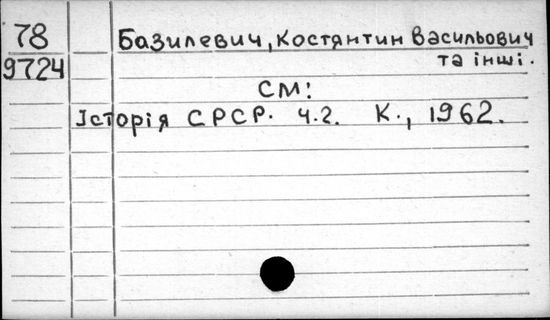 78 Базилевич, Костянтин Васильович
9724 та інші.
СМ:
Історія СРСР. ч.2. К., 1962.